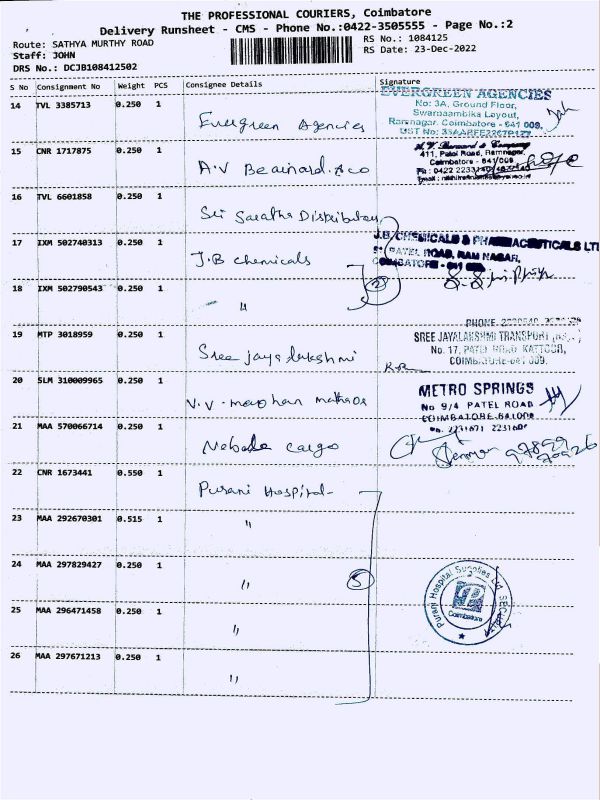 THE PROFESSIONAL COURIERS, Coimbatore
Delivery Runsheet - CMS - Phone No.:0422-3505555 - Page No.:2
Route: SATHYA MURTHY ROAD
RS No.: 1084125
Staff: JOHN
RS Date: 23-Dec-2022
DRS No.: DCJB108412502
S No Consignment No Weight PCS Consignee Details Signature
14 TVL 3385713 0.250 1 Evergreen Agencies
EVERGREEN AGENCIES
No: 3A, Ground Floor,
Swarnaambika Layout,
Ramnagar, Coimbatore - 641 009.
15 CNR 1717875 0.250 1 A.V Bearnard & co
411, Patel Road, Ramnagar,
Coimbatore - 641 009
16 TVL 6601858 0.250 1 Sri Saratha Distributors
17 IXM 502740313 0.250 1 J.B chemicals
J.B. CHEMICALS & PHARMACEUTICALS LTD
PATEL ROAD, RAM NAGAR,
COIMBATORE - 641 009
18 IXM 502790543 0.250 1 "
2
19 MTP 3018959 0.250 1 Sree jaya lakshmi
SREE JAYALAKSHMI TRANSPORT
No. 17, PATEL ROAD KATTOOR,
COIMBATORE-641 009.
20 SLM 310009965 0.250 1
METRO SPRINGS
No 9/4 PATEL ROAD
COIMBATORE-641009
21 MAA 570066714 0.250 1 cargo
22 CNR 1673441 0.550 1 Purani Hospital-
23 MAA 292670301 0.515 1 "
24 MAA 297829427 0.250 1 "
5
Purani Hospital Supplies Ltd
SECURITY
Coimbatore
25 MAA 296471458 0.250 1 "
26 MAA 297671213 0.250 1 "